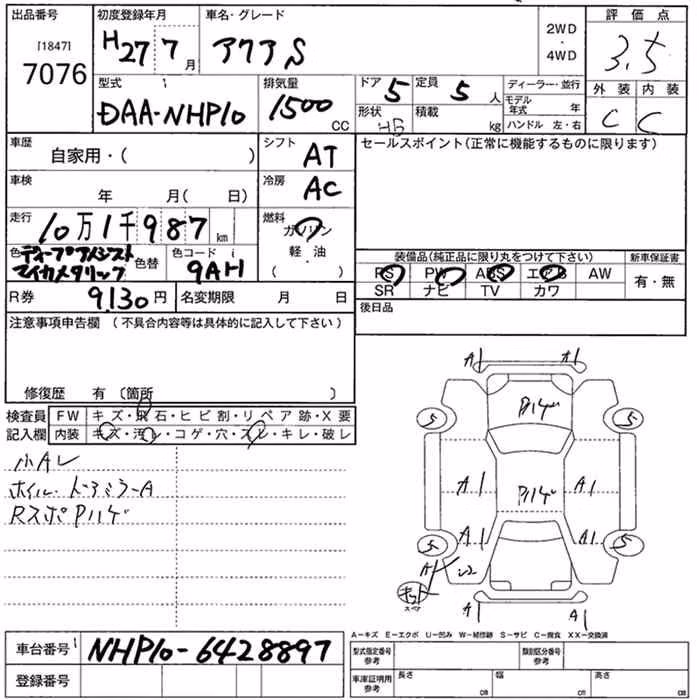 出品番号 初度登録年月 車名・グレード 2WD・4WD 評価点
[1847] 7076 H27 7月 アクア S 3.5
型式 排気量 ドア 5 定員 5人 ディーラー・並行 外装 内装
DAA-NHP10 1500 CC 形状 HB 積載 kg モデル年式 年 C C
ハンドル 左・右
車歴 自家用・( ) シフト AT セールスポイント(正常に機能するものに限ります)
車検 年 月( 日) 冷房 AC
走行 10万1千987km 燃料 ガソリン
軽・油
( )
色 ディープアメジストマイカメタリック 色替 色コード 9AH
装備品(純正品に限り丸をつけて下さい) 新車保証書
PS PW ABS エアB AW 有・無
SR ナビ TV カワ
R券 9130円 名変期限 月 日 後日品
注意事項申告欄 (不具合内容等は具体的に記入して下さい)
修復歴 有 〔箇所 〕
検査員記入欄 FW キズ・飛石・ヒビ割・リペア跡・X要
内装 キズ・汚レ・コゲ・穴・スレ・キレ・破レ
小Aレ
ホイル・ドアミラーA
RスポPハゲ
A1 A1
Pハゲ
5 5
A1 Pハゲ A1
A1 A1
5 5
A
キット
スペア
A1 A1
A-キズ E-エクボ U-凹み W-補修跡 S-サビ C-腐食 XX-交換済
車台番号 NHP10-6428897 型式指定番号 参考 類別区分番号 参考
登録番号 車庫証明用 参考 長さ cm 幅 cm 高さ cm